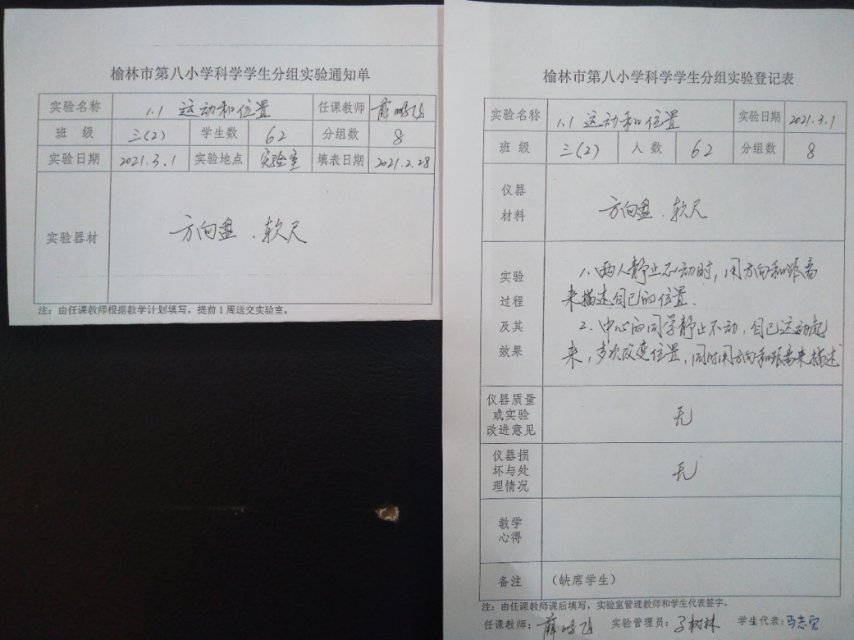 榆林市第八小学科学学生分组实验通知单
实验名称 1.1 运动和位置 任课教师 薛鹏飞
班 级 三(2) 学生数 62 分组数 8
实验日期 2021.3.1 实验地点 实验室 填表日期 2021.2.28
实验器材 方向盘、软尺
注：由任课教师根据教学计划填写，提前1周送交实验室。
榆林市第八小学科学学生分组实验登记表
实验名称 1.1 运动和位置 实验日期 2021.3.1
班 级 三(2) 人 数 62 分组数 8
仪器
材料
方向盘、软尺
实验
过程
及其
效果
1、两人静止不动时，用方向和距离
来描述自己的位置.
2、中心的同学静止不动，自己运动起
来，多次改变位置，同时用方向和距离来描述
仪器质量
或实验
改进意见
无
仪器损
坏与处
理情况
无
教学
心得
备注 (缺席学生)
注：由任课教师课后填写，实验室管理教师和学生代表签字。
任课教师：薛鹏飞 实验管理员：树林 学生代表：马志